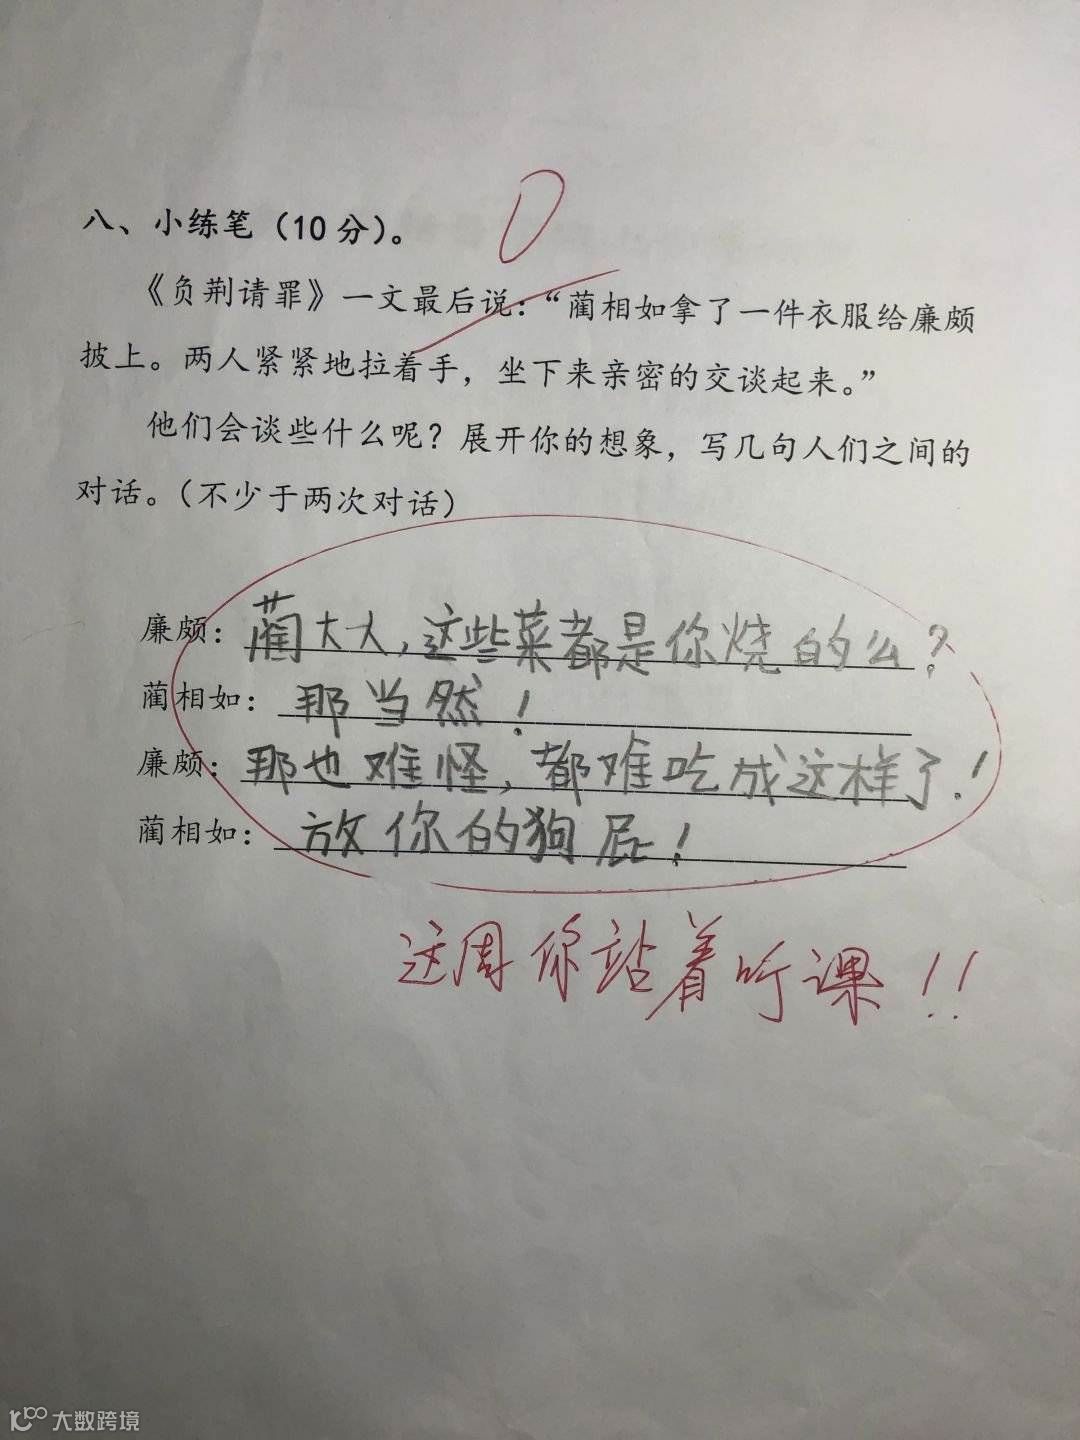 0
八、小练笔（10分）。
《负荆请罪》一文最后说：“蔺相如拿了一件衣服给廉颇
披上。两人紧紧地拉着手，坐下来亲密的交谈起来。”
他们会谈些什么呢？展开你的想象，写几句人们之间的
对话。（不少于两次对话）
廉颇：蔺大人，这些菜都是你烧的么？
蔺相如：那当然！
廉颇：那也难怪，都难吃成这样了！
蔺相如：放你的狗屁！
这周你站着听课！！
大数跨境